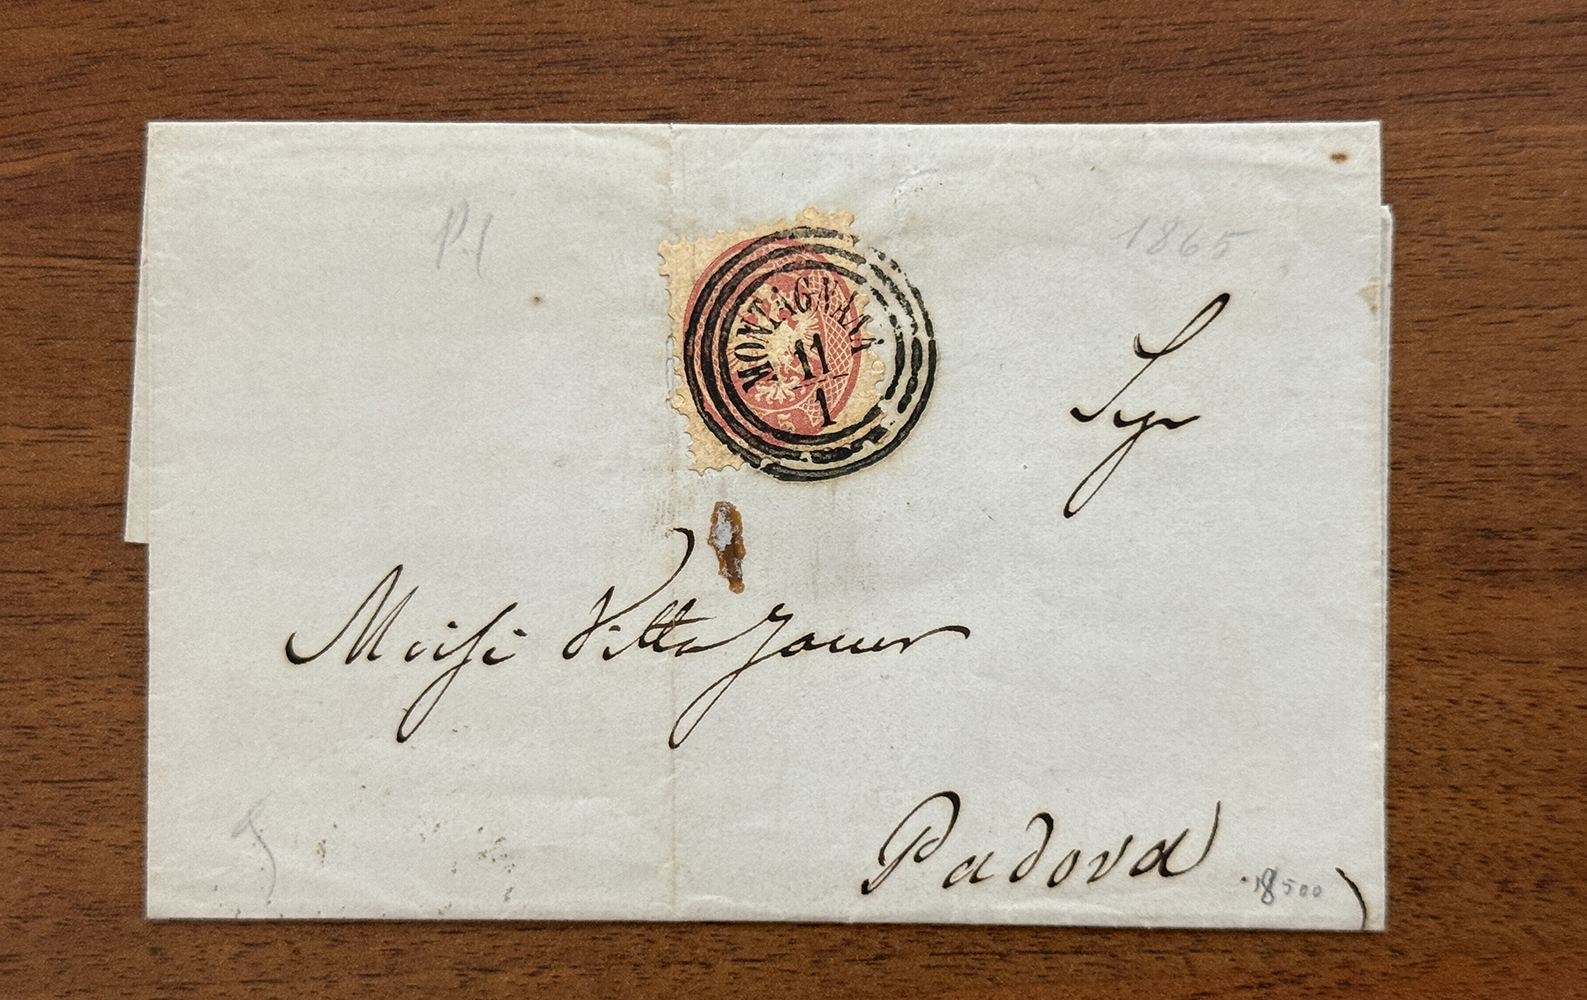 P.1
1865
MONTAGNANA
11
1
5
Sigr
Moisè Vitta Jacur
Padova
18500